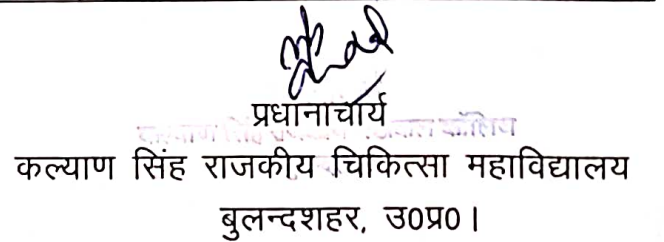 प्रधानाचार्य
कल्याण सिंह राजकीय चिकित्सा महाविद्यालय
बुलन्दशहर, उ0प्र0।